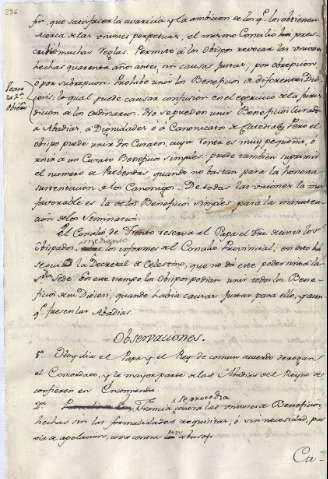 fin que satisfacer la avaricia y la ambicion de los q.e los obtienen
acerca de las uniones perpetuas, el mismo Concilio ha pres-
crito muchas Reglas. Permite a los Obispos revocar las uniones
hechas quarenta años antes, sin causas justas, por obrepcion
ó por subrepcion. Prohibe unir los Beneficios de diferentes Dio-
cesis, lo qual puede causar confusion en el exercicio de la juris-
dicion de los ordinarios. No se pueden unir Beneficios Curados
a Abadias, a Dignidades ó a Canonicatos de Catedral; Pero el
obispo puede unir dos Curatos, cuya renta es muy pequeña, ó
unir a un Curato Beneficios simples; puede tambien suprimir
el numero de Prebendas, quando no bastan para la honesta
sustentacion de los Canonigos. De todas las uniones la mas
favorable es la de los Beneficios simples para la manutencion
de los Seminarios.
El Concilio de Trento reserva al Papa el
Obispados, mediante los informes del Concilio Provincial, en esto ha
la Decretal de Celestino, que no dá este poder sino a la
S.ta Sede. En este tiempo los Obispos podian unir todos los Bene-
ficios de su Diocesi, quando habia causas justas para ello, aun-
q.e fuesen las Abadias.
Observaciones.
1.a Hoy dia el Papa y el Rey de comun acuerdo
el Concordato, y la mayor parte de las Abadias del Reyno se
confieren en Encomienda.
2.a se procedia
contra las uniones de Beneficios
hechas sin las formalidades requisitas, ó sin necesidad, por
via de apelacion, como contra abuso.
Ca-